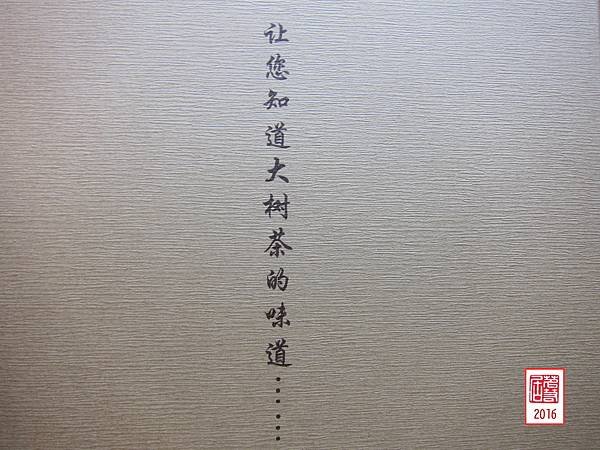 让您知道大树茶的味道……
2016